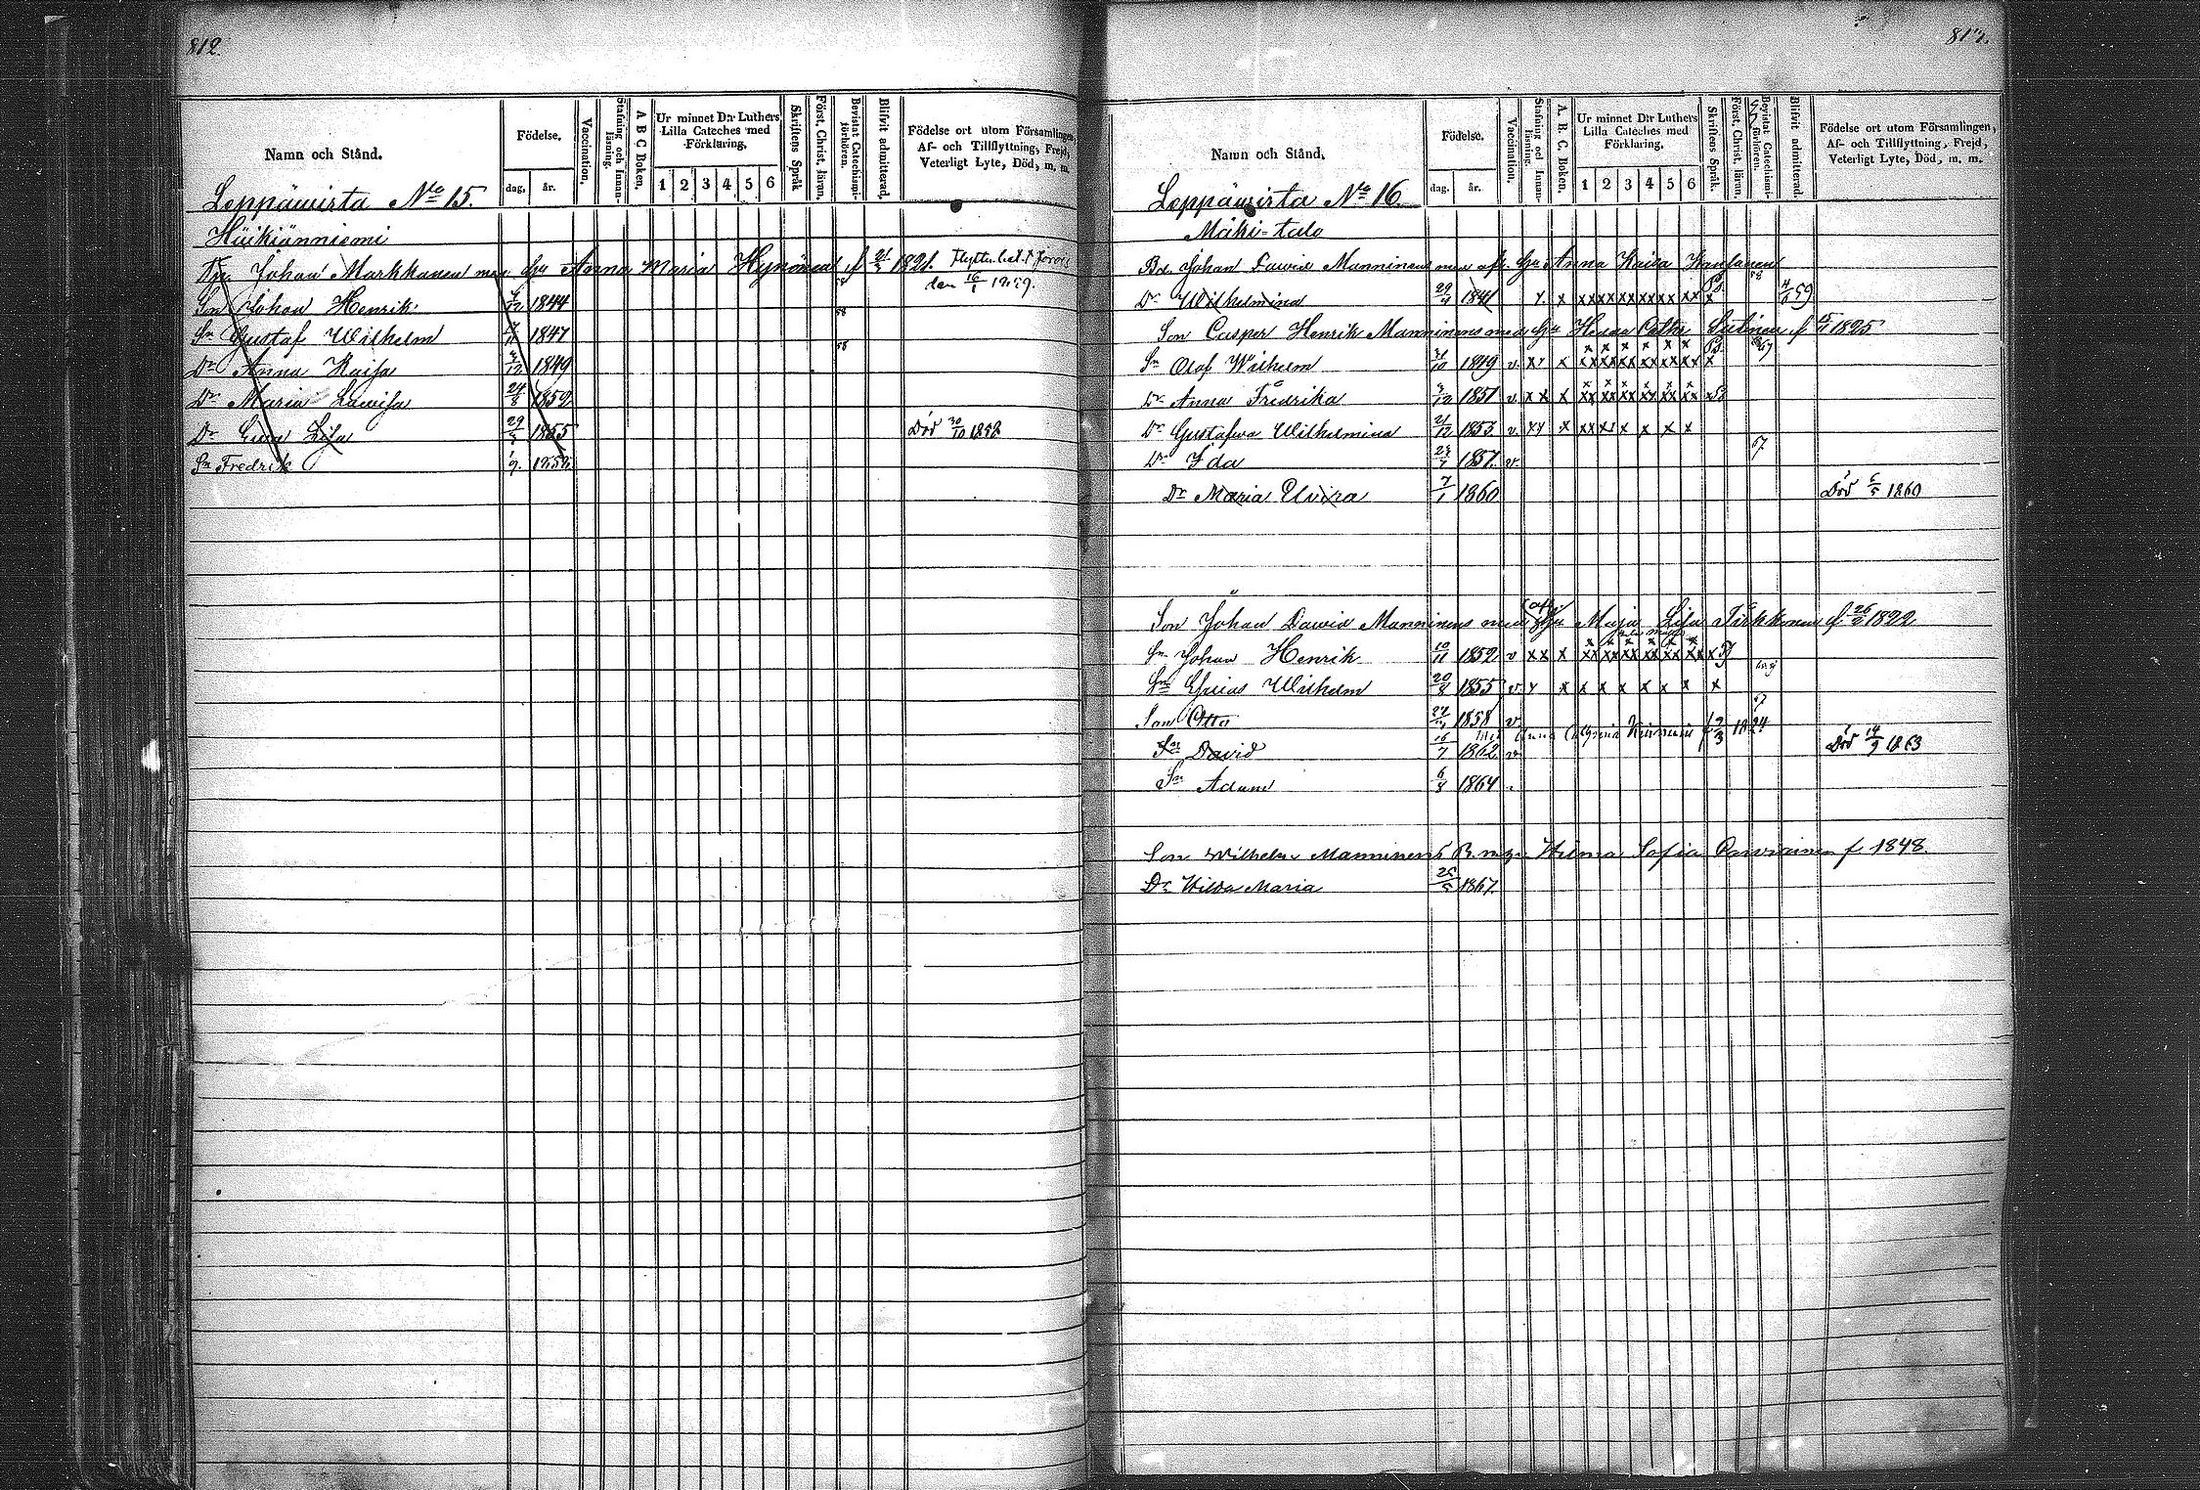 812
Namn och Stånd.
Födelse.
dag.
år.
Vaccination.
Stafning och Innan-läsning.
A B C Boken.
Ur minnet D:r Luthers
Lilla Cateches med
Förklaring.
1 2 3 4 5 6
Skriftens Språk
Först. Christ. läran.
Bevistat Catechismi-förhören.
Blifvit admitterad.
Födelse ort utom Församlingen,
Af- och Tillflyttning, Frejd,
Veterligt Lyte, Död, m. m.
Leppäwirta No 15.
Johan Markkanen med hu Anna Maria Hynönen f 21 1821.
den 16/1 1859.
Son Johan Henrik 1844 58
Sn Gustaf Wilhelm 1847 58
Dr Anna Kaisa 1849 58
Dr Maria Lowisa 24/8 1852
Dr Lisa 29 1855 Död 20/10 1858
Sn Fredrik
813.
Namn och Stånd.
Födelse.
dag.
år.
Vaccination.
Stafning och Innan-läsning.
A. B. C. Boken.
Ur minnet D:r Luthers
Lilla Cateches med
Förklaring.
1 2 3 4 5 6
Skriftens Språk.
Först. Christ. läran.
Bevistat Catechismi-förhören.
Blifvit admitterad.
Födelse ort utom Församlingen,
Af- och Tillflyttning, Frejd,
Veterligt Lyte, Död, m. m.
Leppäwirta No 16.
Mäki-talo
Bd. Johan Dawid Manninens med Anna Kaisa
Dr Wilhelmina 29 1841 x x xx xx xx xx xx xx x 59
Son Casper Henrik Manninens med hu f 1825
Sn Olof Wilhelm 1849 v xx x xx xx xx xx xx xx x
Dr Anna Fredrika 1851 v x x x xx xx xx xx xx xx x
Dr Gustafwa Wilhelmina 21/12 1853 v xx x xx xx x x x x
Dr Ida 1857 v 67
Dr Maria Elvira 7/1 1860 Död 1860
Son Johan Dawid Manninens med hu Maja Lisa f. 26 1822
Sn Johan Henrik 10/11 1852 v xx x xx xx xx xx xx xx x
Sn Wilhelm 20/8 1855 v x x x x x x x x x
Son Otto 1858 v 67
Anna f 2/3 1824
Sn David 16/7 1862 v Död 14/9 1863
Sn Adam 6/8 1864
Son Wilhelm Manninens Sofia f 1848.
Dr Hilda Maria 25/5 1867